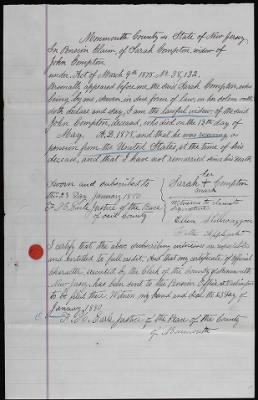 Monmouth County ss. State of New Jersey
In Pension Claim of Sarah Compton, widow of
John Compton
under Act of March 9th 1878. No. 28,132.
Personally appeared before me, the said Sarah Compton, who
being by me, sworn, in due form of law, on her solemn oath
doth declare and say, I am the lawful widow of the said
John Compton, deceased, who died on the 13th day of
May, A.D. 1878, and that he was
pension from the United States, at the time of his
decease, and that I have not remarried since his death
Sworn and subscribed to
this 23 day January 1880.
Justice of the Peace
of said County
her
Sarah + Compton
mark
Witnesses to claimant
signature
Ellen
I certify that the above subscribing witnesses are respectable
and entitled to full credit. And that my certificate of official
character executed by the Clerk of the County of Monmouth
New Jersey, has been sent to the Pension Office at Washington
to be filed there. Witness my hand and seal the 23 day of
January 1880.
Justice of the Peace of the County
of Monmouth